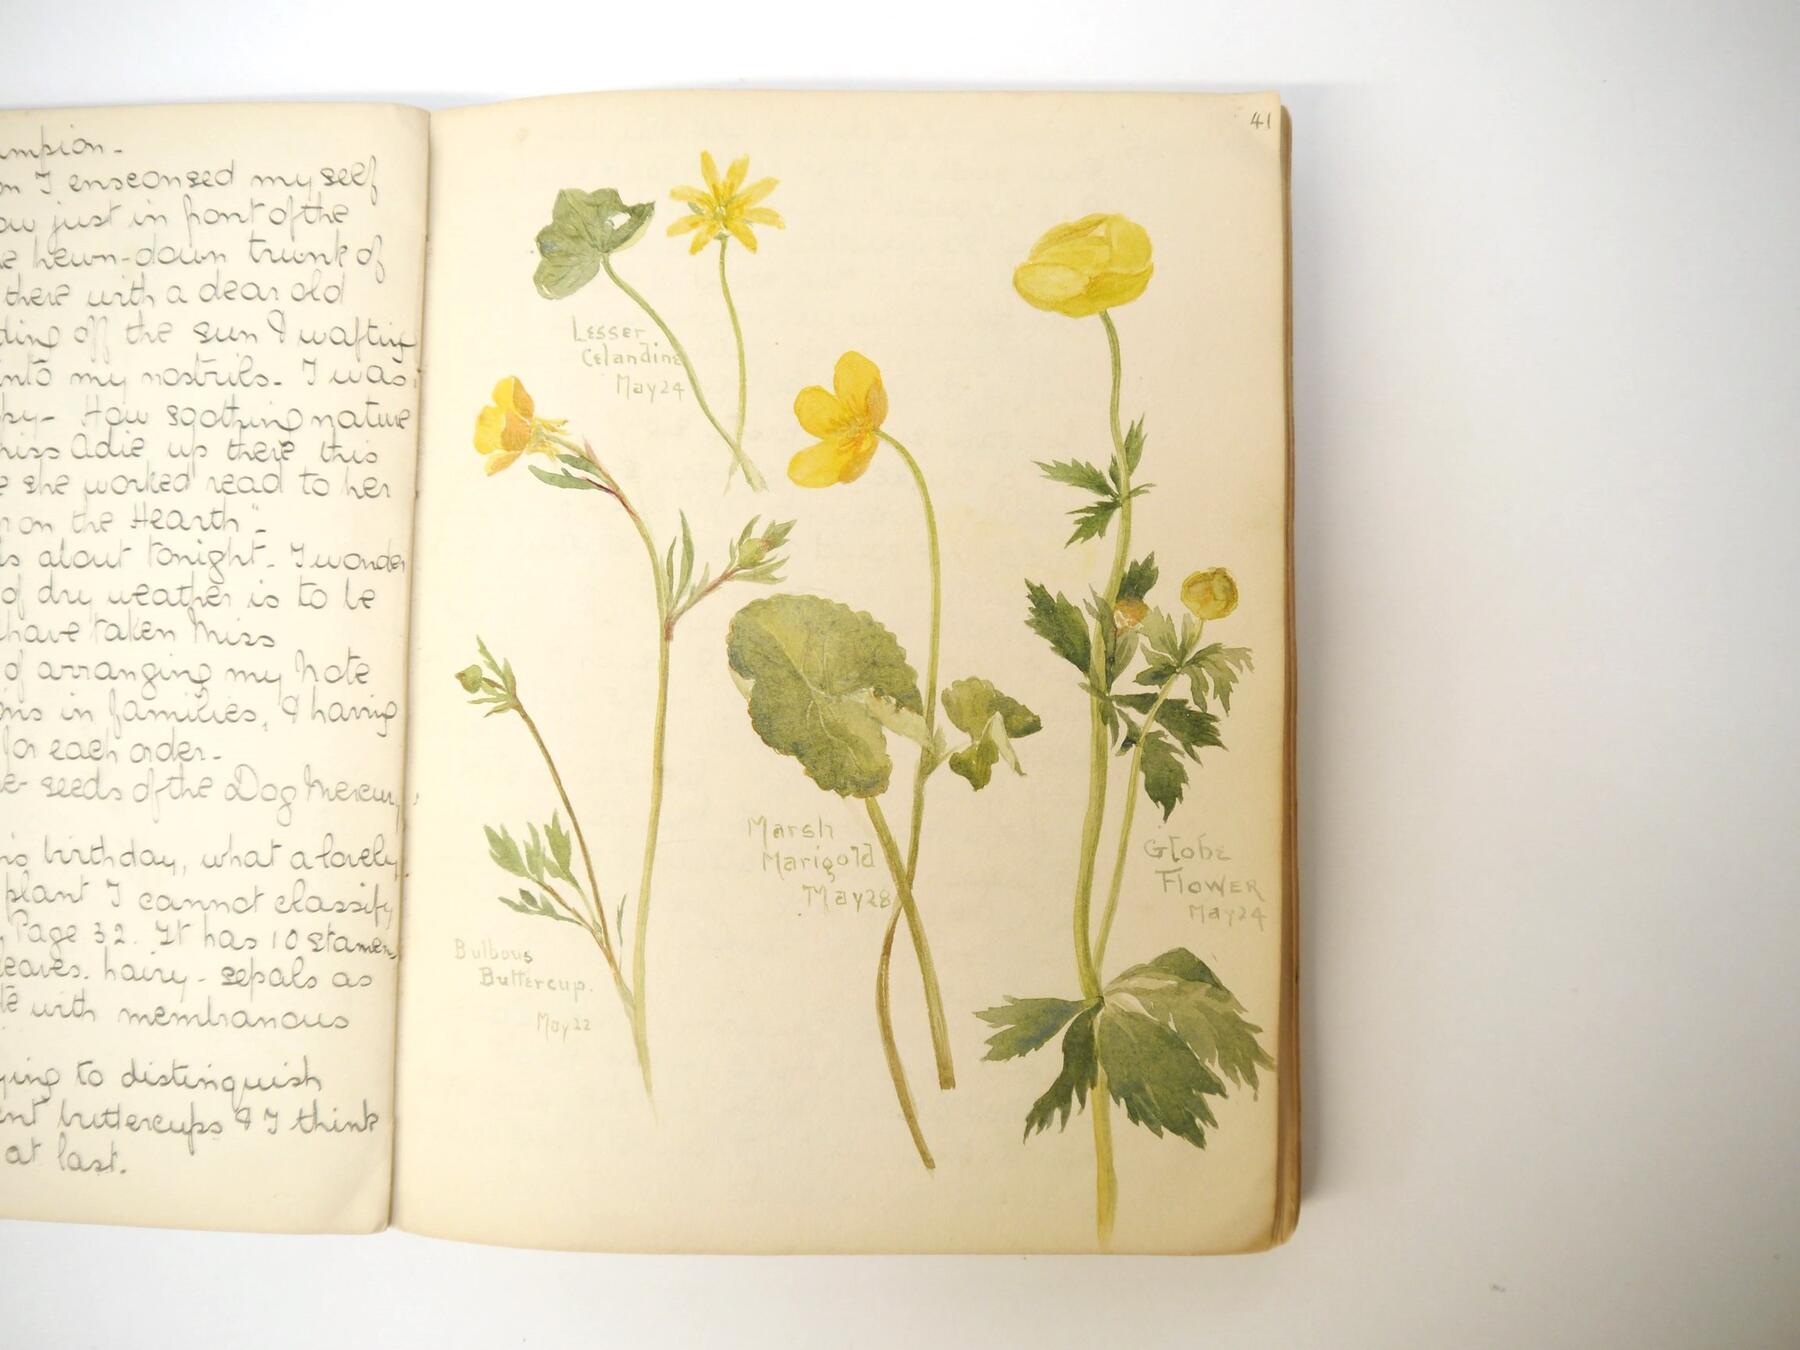 on I ensconsed myself
just in front of the
hewn-down trunk of
there with a dear old
ding off the sun & wafting
into my nostrils - I was
ky - How soothing nature
Miss Adie up there this
e she worked read to her
on the Hearth"-
ls about tonight - I wonder
of dry weather is to be
have taken Miss
of arranging my Note
ons in families, & having
for each order -
seeds of the Dog Mercury
birthday, what a lovely
plant I cannot classify
Page 32. It has 10 stamen
leaves. hairy - sepals as
te with membranous
ying to distinguish
ent buttercups & I think
at last.
41
Lesser
Celandine
May 24
Bulbous
Buttercup.
May 22
Marsh
Marigold
May 28
Globe
Flower
May 24